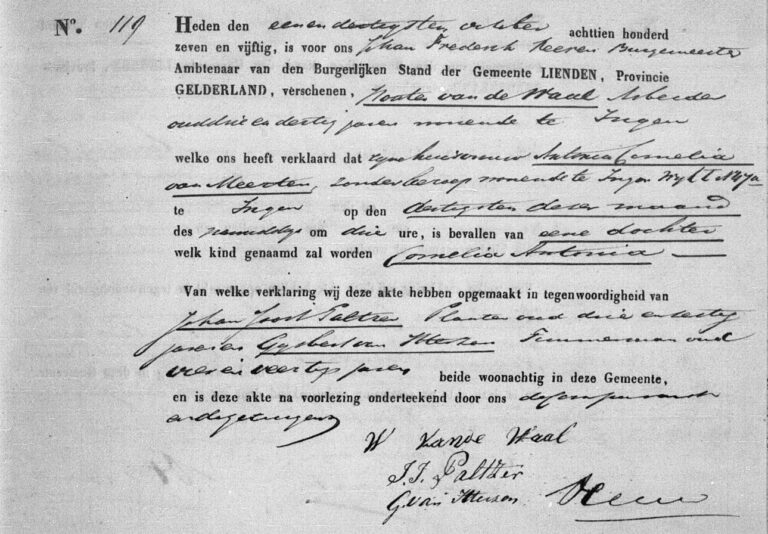 N.º 119 HEDEN den eenendertigsten october achttien honderd
zeven en vijftig, is voor ons Johan Frederik Heeren Burgemeester
Ambtenaar van den Burgerlijken Stand der Gemeente LIENDEN, Provincie
GELDERLAND, verschenen, Wouter van de Waal Arbeider
oud drie en dertig jaren wonende te Ingen
welke ons heeft verklaard dat zyne huisvrouw Antonia Cornelia
van Meerten, zonder beroep wonende te Ingen Wyk I
te Ingen op den dertigsten dezer maand
des namiddags om drie ure, is bevallen van eene dochter
welk kind genaamd zal worden Cornelia Antonia
Van welke verklaring wij deze akte hebben opgemaakt in tegenwoordigheid van
Johan Joost Paltzer Planter oud drie en
jaren en Gysbert van Ittersen Timmerman oud
vier en veertig jaren beide woonachtig in deze Gemeente,
en is deze akte na voorlezing onderteekend door ons de comparant
en de getuigen
W van de Waal
J.J. Paltzer
G. van Ittersen Heeren